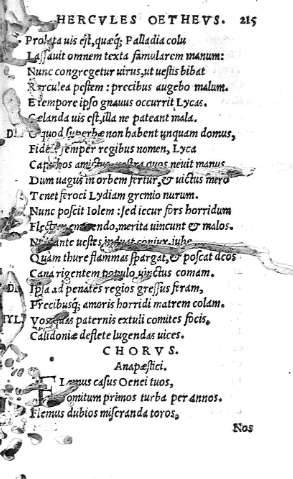 HERCVLES OETHEVS. 215
Prolata uis est, quæq; Palladia colu
Lassauit omnem texta famularem manum:
Nunc congregetur uirus, ut uestis bibat
Herculea pestem: precibus augebo malum.
E tempore ipso gnauus occurrit Lycas.
Celanda uis est, illa ne pateant mala.
quod superbæ non habent unquam domus,
semper regibus nomen, Lyca
quos neuit manus
Dum uagus in orbem fertur, & uictus mero
Tenet feroci Lydiam gremio nurum.
Nunc poscit Iolem: sed iecur fors horridum
merita uincunt & malos.
iube
Quam thure flammas spargat, & poscat deos
Cana rigentem populo uinctus comam.
Ipsa ad penates regios gressus feram,
Precibusq; amoris horridi matrem colam.
paternis extuli comites focis,
Calidoniæ deflete lugendas uices.
CHORVS.
Anapæstici.
Flemus casus Oenei tuos,
comitum primos turba per annos.
Flemus dubios miseranda toros,
Nos